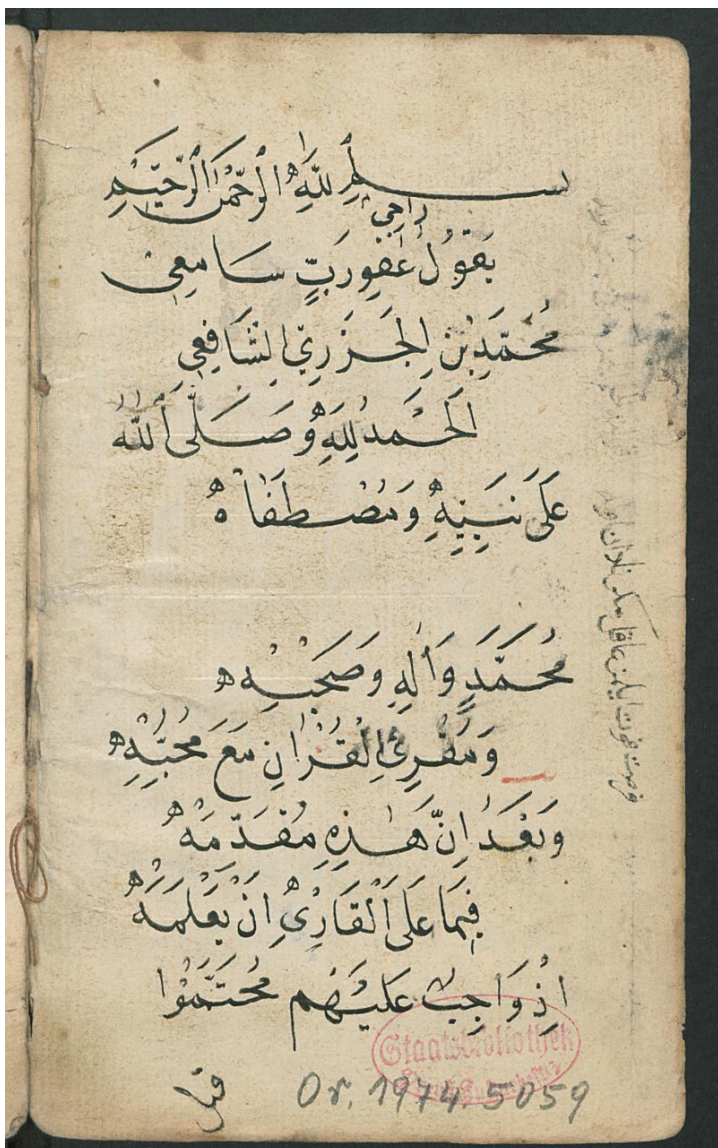 بسم الله الرحمن الرحيم
راجي
يقول عفو رب سامع
محمد بن الجزري الشافعي
الحمد لله وصلى الله
على نبيه ومصطفاه
محمد وآله وصحبه
ومقرئ القرآن مع محبه
وبعد ان هذه مقدمه
فيما على القارئ ان يعلمه
اذ واجب عليهم محتم
قبل
Staatsbibliothek
Or. 1974.5059